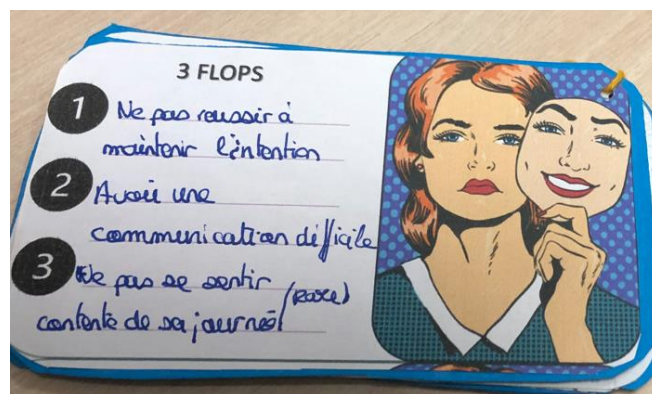 3 FLOPS
1 Ne pas reussir à
maintenir l'intention
2 Avoir une
communication difficile
3 Ne pas se sentir
contente de sa journée (rare)